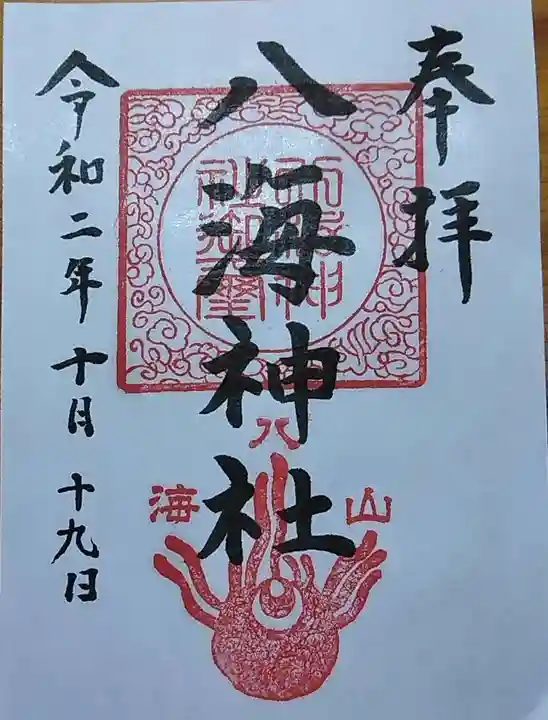 奉拝
八海神社
令和二年 十月 十九日
八
海
山